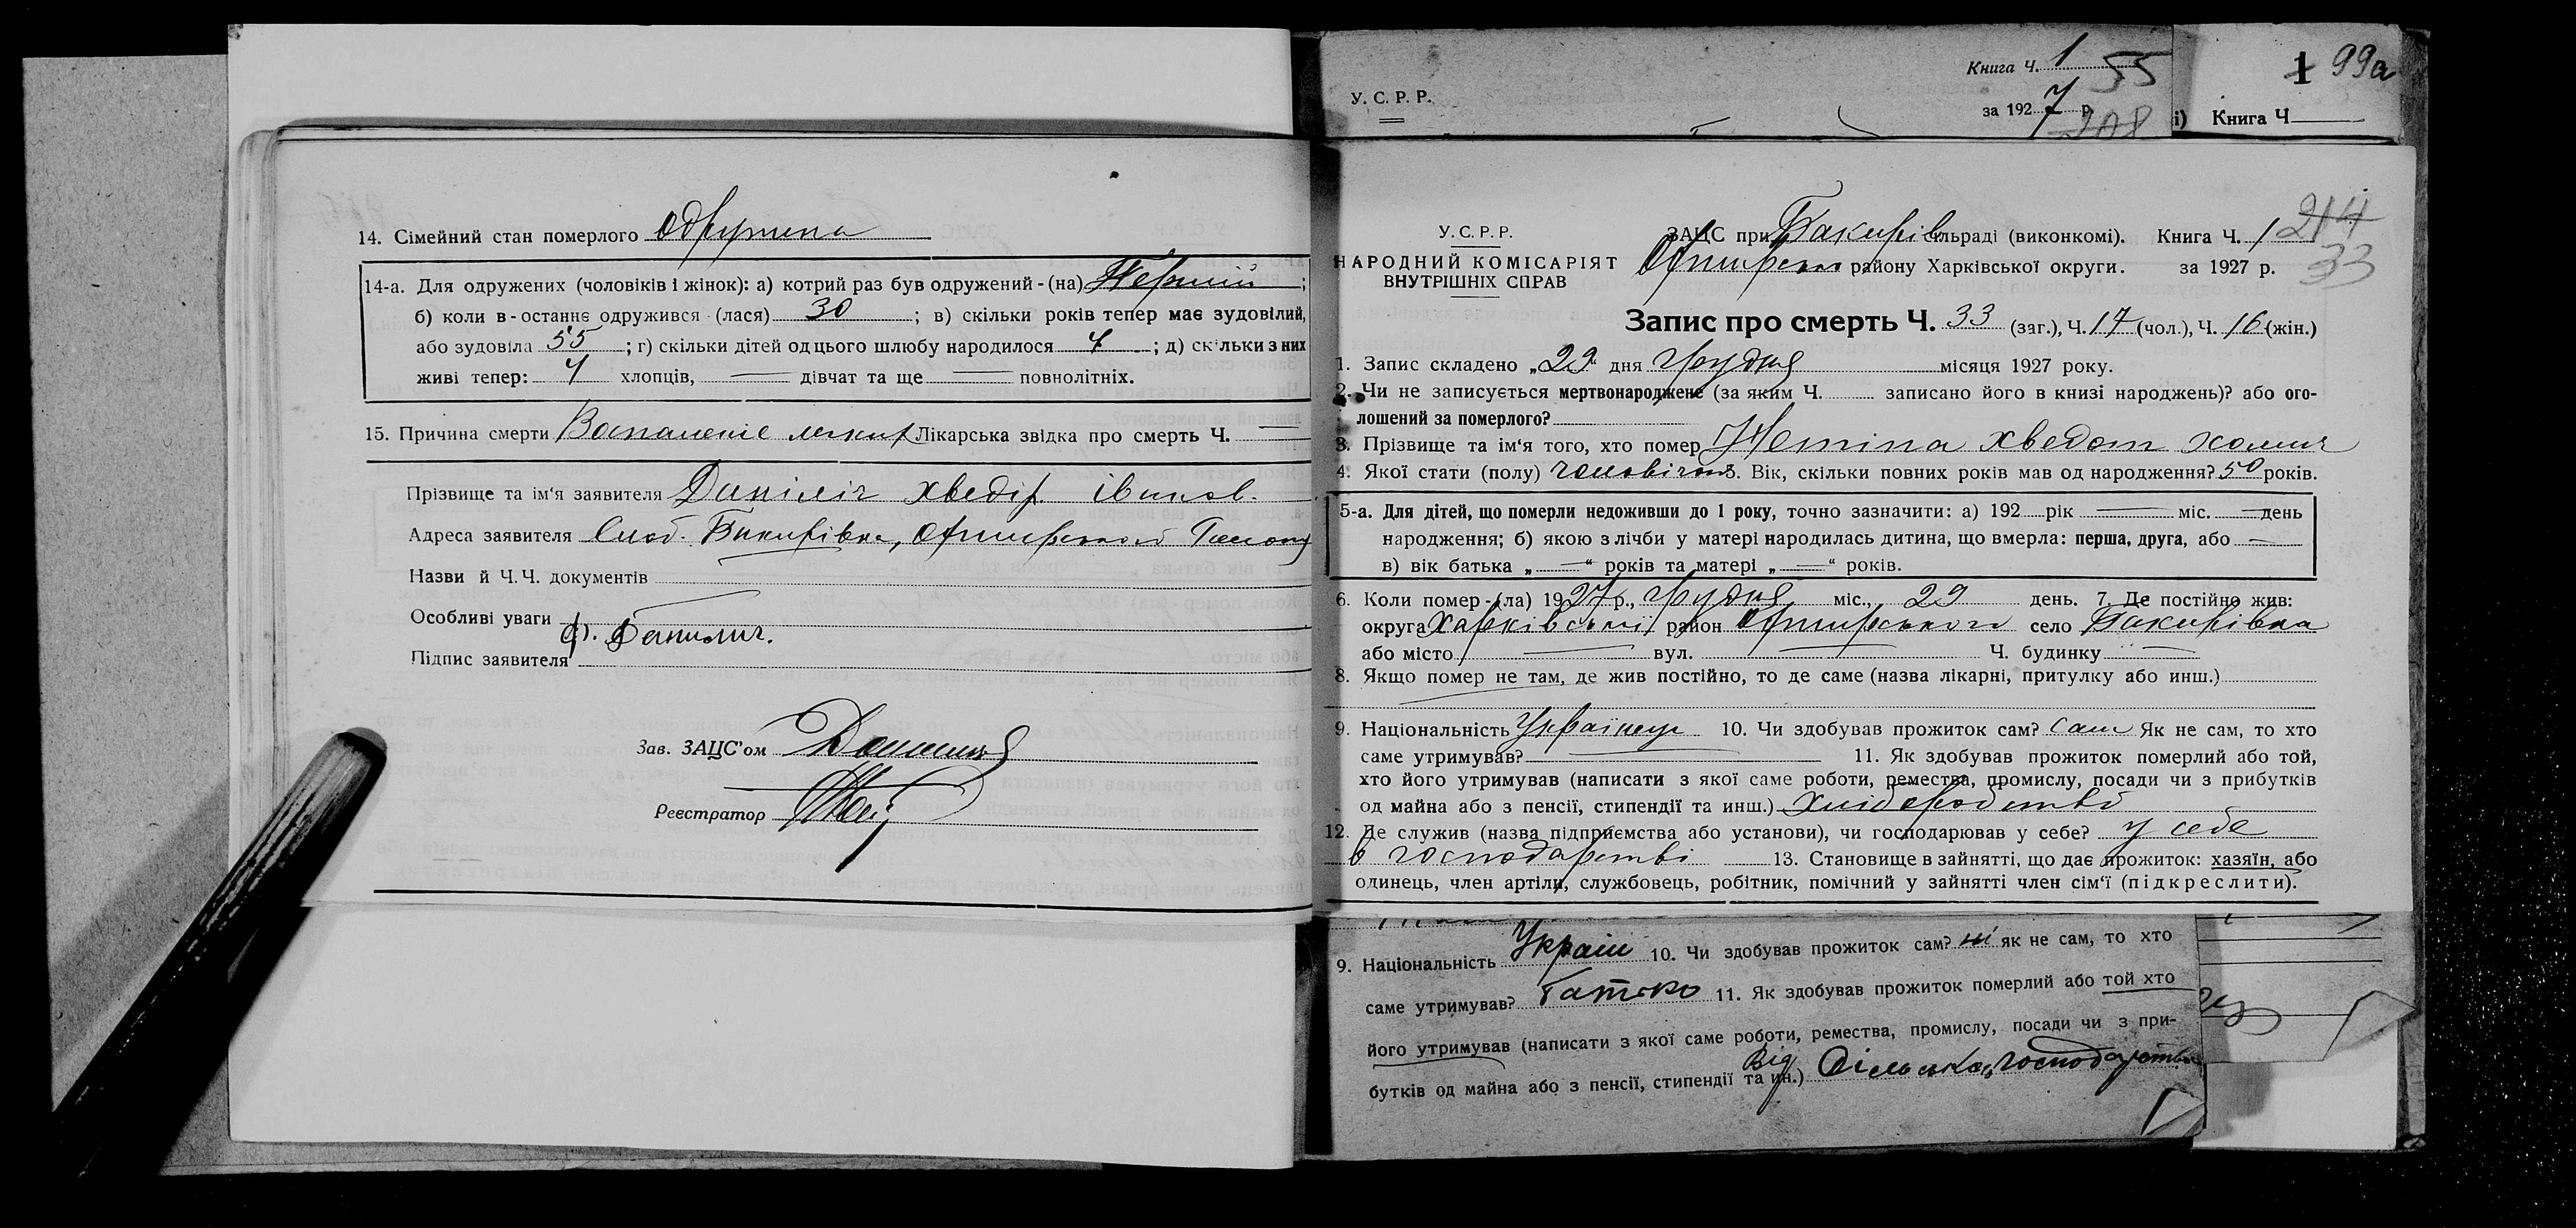 14. Сімейний стан померлого одружена
14-а. Для одружених (чоловіків і жінок): а) котрий раз був одружений-(на) Перший;
б) коли в-останнє одружився (лася) 30; в) скільки років тепер має зудовілий,
або зудовіла 55; г) скільки дітей од цього шлюбу народилося 4; д) скільки з них
живі тепер: 4 хлопців, — дівчат та ще — повнолітніх.
15. Причина смерти Воспаление легких Лікарська звідка про смерть Ч. —
Прізвище та ім'я заявителя Даніліч Хведір іванов.
Адреса заявителя Слоб. Бакирівка, Охтирського
Назви й Ч.Ч. документів
Особливі уваги
Підпис заявителя Ф. Данилич.
Зав. ЗАЦС'ом
Реєстратор
У. С. Р. Р.
Книга Ч. 1
55
за 1927 р.
208
1 99а
і) Книга Ч
У.С.Р.Р.
НАРОДНИЙ КОМІСАРІЯТ
ВНУТРІШНІХ СПРАВ
ЗАЦС при Бакирів сільраді (виконкомі). Книга Ч. 1
214
Охтирського району Харківської округи. за 1927 р.
33
Запис про смерть Ч. 33 (заг.), Ч. 17 (чол.), Ч. 16 (жін.)
1. Запис складено „29" дня Грудня місяця 1927 року.
2. Чи не записується мертвонароджене (за яким Ч. записано його в книзі народжень)? або ого-
лошений за померлого?
3. Прізвище та ім'я того, хто помер Хведот Хомич
4. Якої стати (полу) чоловічої 5. Вік, скільки повних років мав од народження? 50 років.
5-а. Для дітей, що померли недоживши до 1 року, точно зазначити: а) 192 рік — міс. — день
народження; б) якою з лічби у матері народилась дитина, що вмерла: перша, друга, або —
в) вік батька „—" років та матері „—" років.
6. Коли помер-(ла) 1927 р., Грудня міс., 29 день. 7. Де постійно жив:
округа Харківської район Охтирського село Бакирівка
або місто — вул. — Ч. будинку —
8. Якщо помер не там, де жив постійно, то де саме (назва лікарні, притулку або инш.)
9. Національність Українец 10. Чи здобував прожиток сам? сам Як не сам, то хто
саме утримував? — 11. Як здобував прожиток померлий або той,
хто його утримував (написати з якої саме роботи, ремества, промислу, посади чи з прибутків
од майна або з пенсії, стипендії та инш.) хліборобство
12. Де служив (назва підприємства або установи), чи господарював у себе? у себе
в господарстві 13. Становище в зайнятті, що дає прожиток: хазяїн, або
одинець, член артіли, службовець, робітник, помічний у зайнятті член сім'ї (підкреслити).
9. Національність Україн 10. Чи здобував прожиток сам? ні як не сам, то хто
саме утримував? батько 11. Як здобував прожиток померлий або той хто
його утримував (написати з якої саме роботи, ремества, промислу, посади чи з при-
бутків од майна або з пенсії, стипендії та ин.) Від сільська господарства